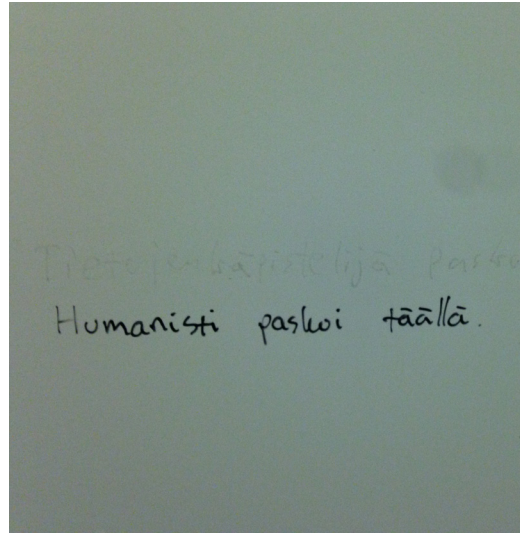 Tietojenkäsittelijä
Humanisti paskoi täällä.